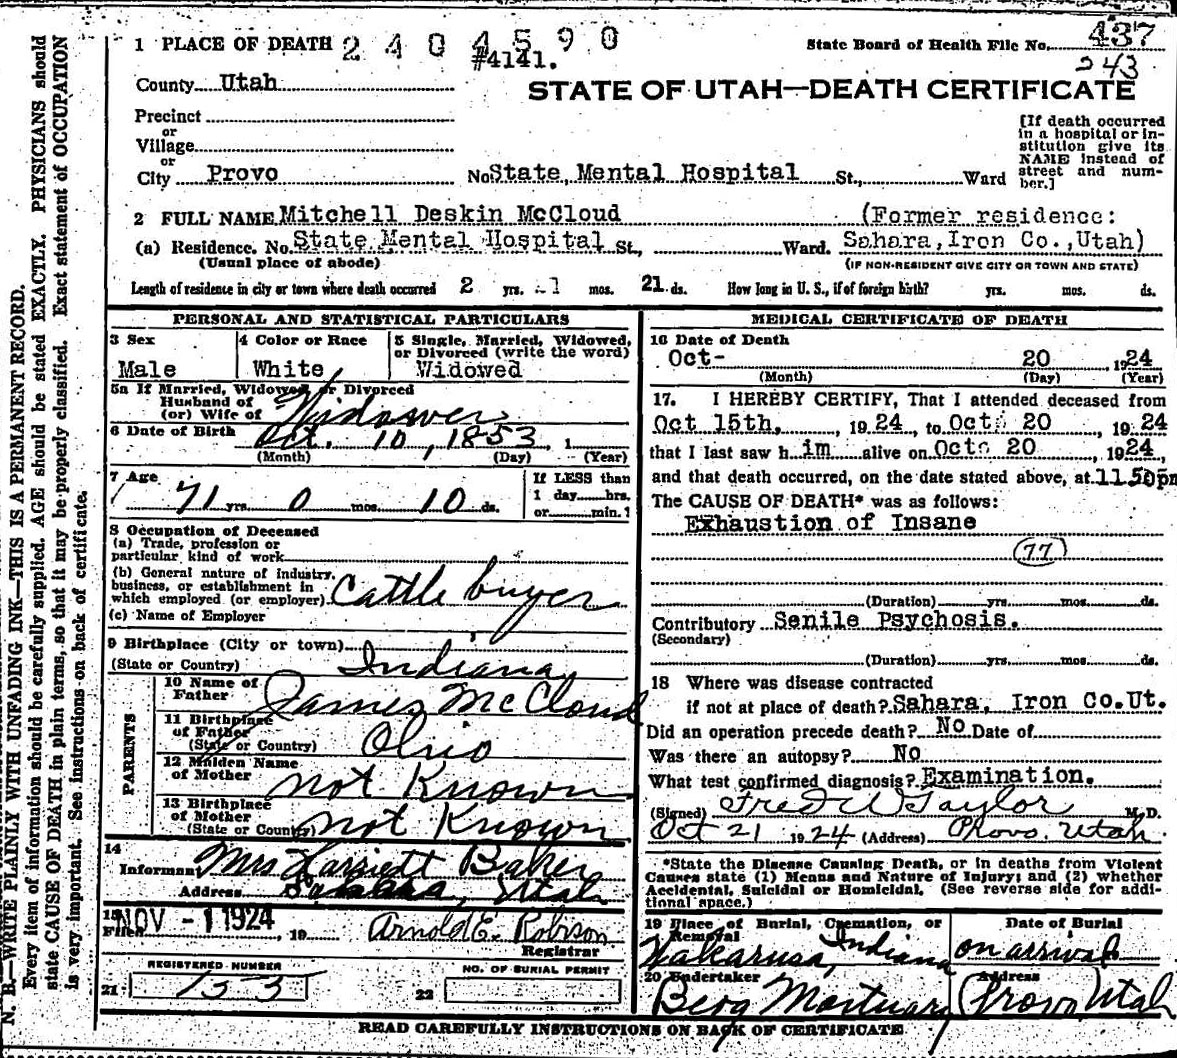 1 PLACE OF DEATH 2404590
#4141.
State Board of Health File No. 437
243
County Utah
STATE OF UTAH—DEATH CERTIFICATE
Precinct
or
Village
or
City Provo No. State Mental Hospital St., Ward
[If death occurred
in a hospital or in-
stitution give its
NAME instead of
street and num-
ber.]
2 FULL NAME Mitchell Deskin McCloud (Former residence:
(a) Residence. No. State Mental Hospital St., Ward. Sahara, Iron Co., Utah)
(Usual place of abode) (IF NON-RESIDENT GIVE CITY OR TOWN AND STATE)
Length of residence in city or town where death occurred 2 yrs. 1 mos. 21 ds. How long in U. S., if of foreign birth? yrs. mos. ds.
PERSONAL AND STATISTICAL PARTICULARS
3 Sex
Male
4 Color or Race
White
5 Single, Married, Widowed,
or Divorced (write the word)
Widowed
5a If Married, Widowed, or Divorced
Husband of
(or) Wife of Widower
6 Date of Birth Oct. 10, 1853, 1
(Month) (Day) (Year)
7 Age
71 yrs. 0 mos. 10 ds.
If LESS than
1 day hrs.
or min.
8 Occupation of Deceased
(a) Trade, profession or
particular kind of work
(b) General nature of industry,
business, or establishment in
which employed (or employer) Cattle buyer
(c) Name of Employer
9 Birthplace (City or town)
(State or Country) Indiana
PARENTS
10 Name of
Father James McCloud
11 Birthplace
of Father
(State or Country) Ohio
12 Maiden Name
of Mother not Known
13 Birthplace
of Mother
(State or Country) not Known
14
Informant Mrs Harriett Baker
Address Sahara, Utah
15
Filed NOV -1 1924, 19 Arnold E. Robison
Registrar
REGISTERED NUMBER
21 153
NO. OF BURIAL PERMIT
22
MEDICAL CERTIFICATE OF DEATH
16 Date of Death
Oct- 20 1924
(Month) (Day) (Year)
17. I HEREBY CERTIFY, That I attended deceased from
Oct 15th, 1924, to Oct 20 1924
that I last saw him alive on Oct 20 1924,
and that death occurred, on the date stated above, at 11.50pm
The CAUSE OF DEATH* was as follows:
Exhaustion of Insane
(77)
(Duration) yrs. mos. ds.
Contributory Senile Psychosis.
(Secondary)
(Duration) yrs. mos. ds.
18 Where was disease contracted
if not at place of death? Sahara, Iron Co.Ut.
Did an operation precede death? No Date of
Was there an autopsy? No
What test confirmed diagnosis? Examination.
(Signed) Fred W Taylor M.D.
Oct 21 1924 (Address) Provo, Utah
*State the Disease Causing Death, or in deaths from Violent
Causes state (1) Means and Nature of Injury; and (2) whether
Accidental, Suicidal or Homicidal. (See reverse side for addi-
tional space.)
19 Place of Burial, Cremation, or
Removal
Wakarusa, Indiana
Date of Burial
on arrival
20 Undertaker
Berg Mortuary
Address
Provo, Utah
READ CAREFULLY INSTRUCTIONS ON BACK OF CERTIFICATE
N. B.—WRITE PLAINLY WITH UNFADING INK—THIS IS A PERMANENT RECORD.
Every item of information should be carefully supplied. AGE should be stated EXACTLY. PHYSICIANS should
state CAUSE OF DEATH in plain terms, so that it may be properly classified. Exact statement of OCCUPATION
is very important. See instructions on back of certificate.